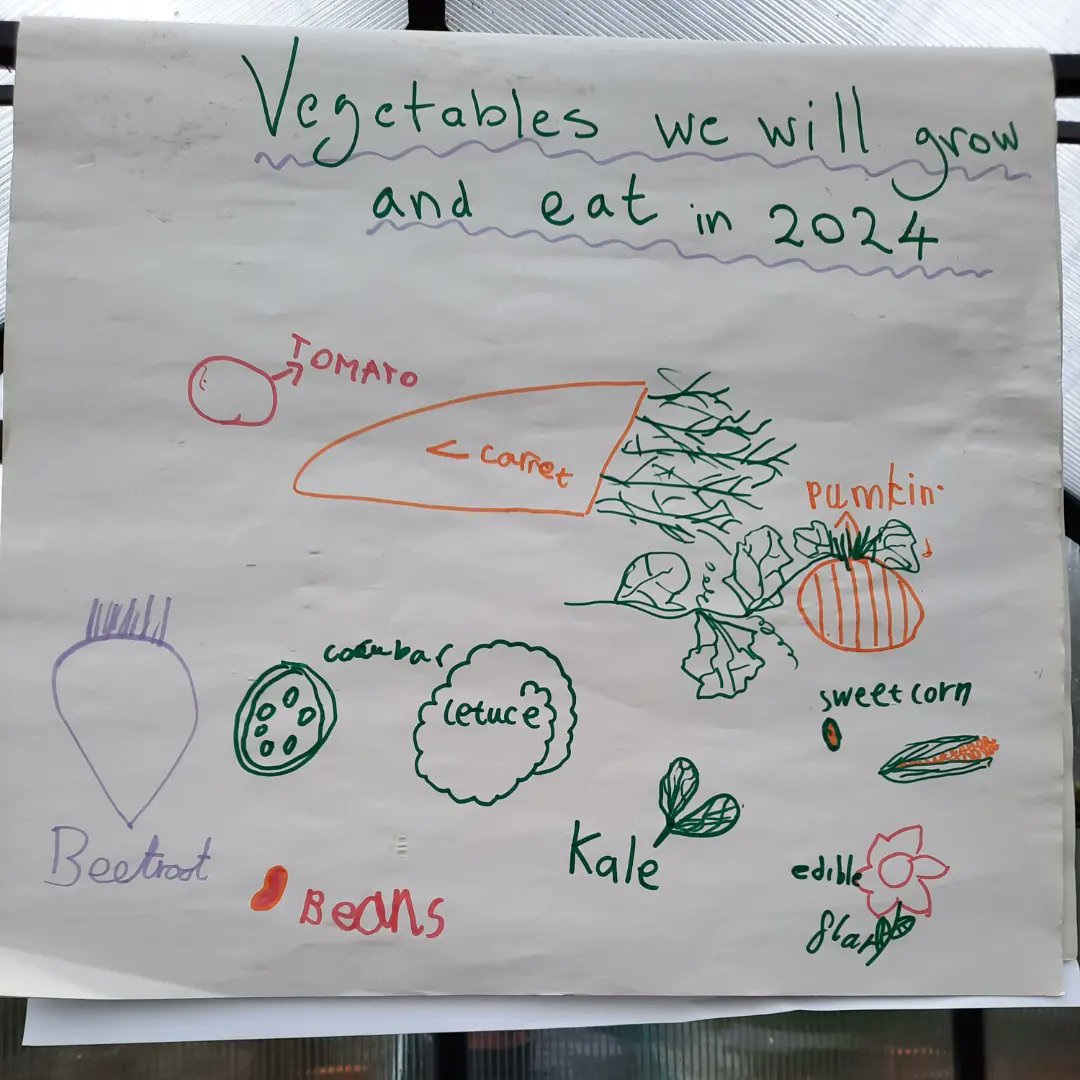 Vegetables we will grow
and eat in 2024
TOMATO
carret
pumkin
cocumbar
letuce
sweet corn
Beetroot
Kale
edible
Beans